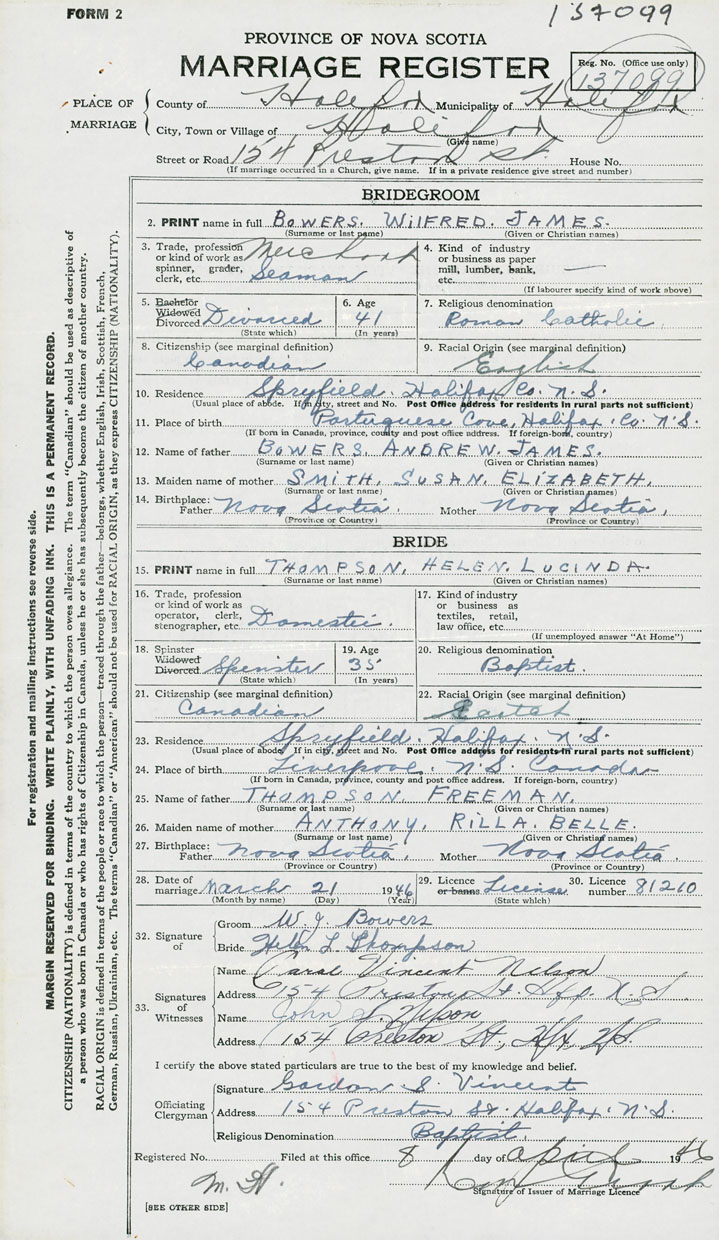 FORM 2
137099
PROVINCE OF NOVA SCOTIA
MARRIAGE REGISTER
Reg. No. (Office use only)
137099
PLACE OF MARRIAGE
County of Halifax Municipality of Halifax
City, Town or Village of Halifax
(Give name)
Street or Road 154 Preston St. House No.
(If marriage occurred in a Church, give name. If in a private residence give street and number)
BRIDEGROOM
2. PRINT name in full BOWERS. WILFRED. JAMES.
(Surname or last name) (Given or Christian names)
3. Trade, profession or kind of work as spinner, grader, clerk, etc. Merchant Seaman
4. Kind of industry or business as paper mill, lumber, bank, etc. —
(If labourer specify kind of work above)
5. Bachelor Widowed Divorced Divorced
(State which)
6. Age 41
(In years)
7. Religious denomination
Roman Catholic.
8. Citizenship (see marginal definition)
Canadian
9. Racial Origin (see marginal definition)
English
10. Residence Spryfield. Halifax Co. N.S.
(Usual place of abode. If in city, street and No. Post Office address for residents in rural parts not sufficient)
11. Place of birth Portuguese Cove, Halifax. Co. N.S.
(If born in Canada, province, county and post office address. If foreign-born, country)
12. Name of father BOWERS, ANDREW. JAMES.
(Surname or last name) (Given or Christian names)
13. Maiden name of mother SMITH, SUSAN. ELIZABETH.
(Surname or last name) (Given or Christian names)
14. Birthplace: Father Nova Scotia. Mother Nova Scotia,
(Province or Country) (Province or Country)
BRIDE
15. PRINT name in full THOMPSON. HELEN. LUCINDA.
(Surname or last name) (Given or Christian names)
16. Trade, profession or kind of work as operator, clerk, stenographer, etc. Domestic.
17. Kind of industry or business as textiles, retail, law office, etc.
(If unemployed answer "At Home")
18. Spinster Widowed Divorced Spinster
(State which)
19. Age 35
(In years)
20. Religious denomination
Baptist.
21. Citizenship (see marginal definition)
Canadian
22. Racial Origin (see marginal definition)
23. Residence Spryfield. Halifax. N.S.
(Usual place of abode. If in city, street and No. Post Office address for residents in rural parts not sufficient)
24. Place of birth Liverpool, N.S. Canada
(If born in Canada, province, county and post office address. If foreign-born, country)
25. Name of father THOMPSON, FREEMAN.
(Surname or last name) (Given or Christian names)
26. Maiden name of mother ANTHONY, RILLA. BELLE.
(Surname or last name) (Given or Christian names)
27. Birthplace: Father Nova Scotia, Mother Nova Scotia.
(Province or Country) (Province or Country)
28. Date of marriage March 21 1946
(Month by name) (Day) (Year)
29. Licence or banns License
(State which)
30. Licence number 81210
32. Signature of
Groom W. J. Bowers
Bride Helen L Thompson
33. Signatures of Witnesses
Name Carol Vincent Nelson
Address 154 Preston St. Hfx. N.S
Name John S. Nelson
Address 154 Preston St., Hfx, NS.
I certify the above stated particulars are true to the best of my knowledge and belief.
Officiating Clergyman
Signature Gordon S. Vincent
Address 154 Preston St. Halifax. N.S.
Religious Denomination Baptist.
Registered No. Filed at this office 8 day of April 1946
M. H.
Signature of Issuer of Marriage Licence
[SEE OTHER SIDE]
For registration and mailing instructions see reverse side.
MARGIN RESERVED FOR BINDING. WRITE PLAINLY, WITH UNFADING INK. THIS IS A PERMANENT RECORD.
CITIZENSHIP (NATIONALITY) is defined in terms of the country to which the person owes allegiance. The term "Canadian" should be used as descriptive of
a person who was born in Canada or who has rights of Citizenship in Canada, unless he or she has subsequently become the citizen of another country.
RACIAL ORIGIN is defined in terms of the people or race to which the person—traced through the father—belongs, whether English, Irish, Scottish, French,
German, Russian, Ukrainian, etc. The terms "Canadian" or "American" should not be used for RACIAL ORIGIN, as they express CITIZENSHIP (NATIONALITY).